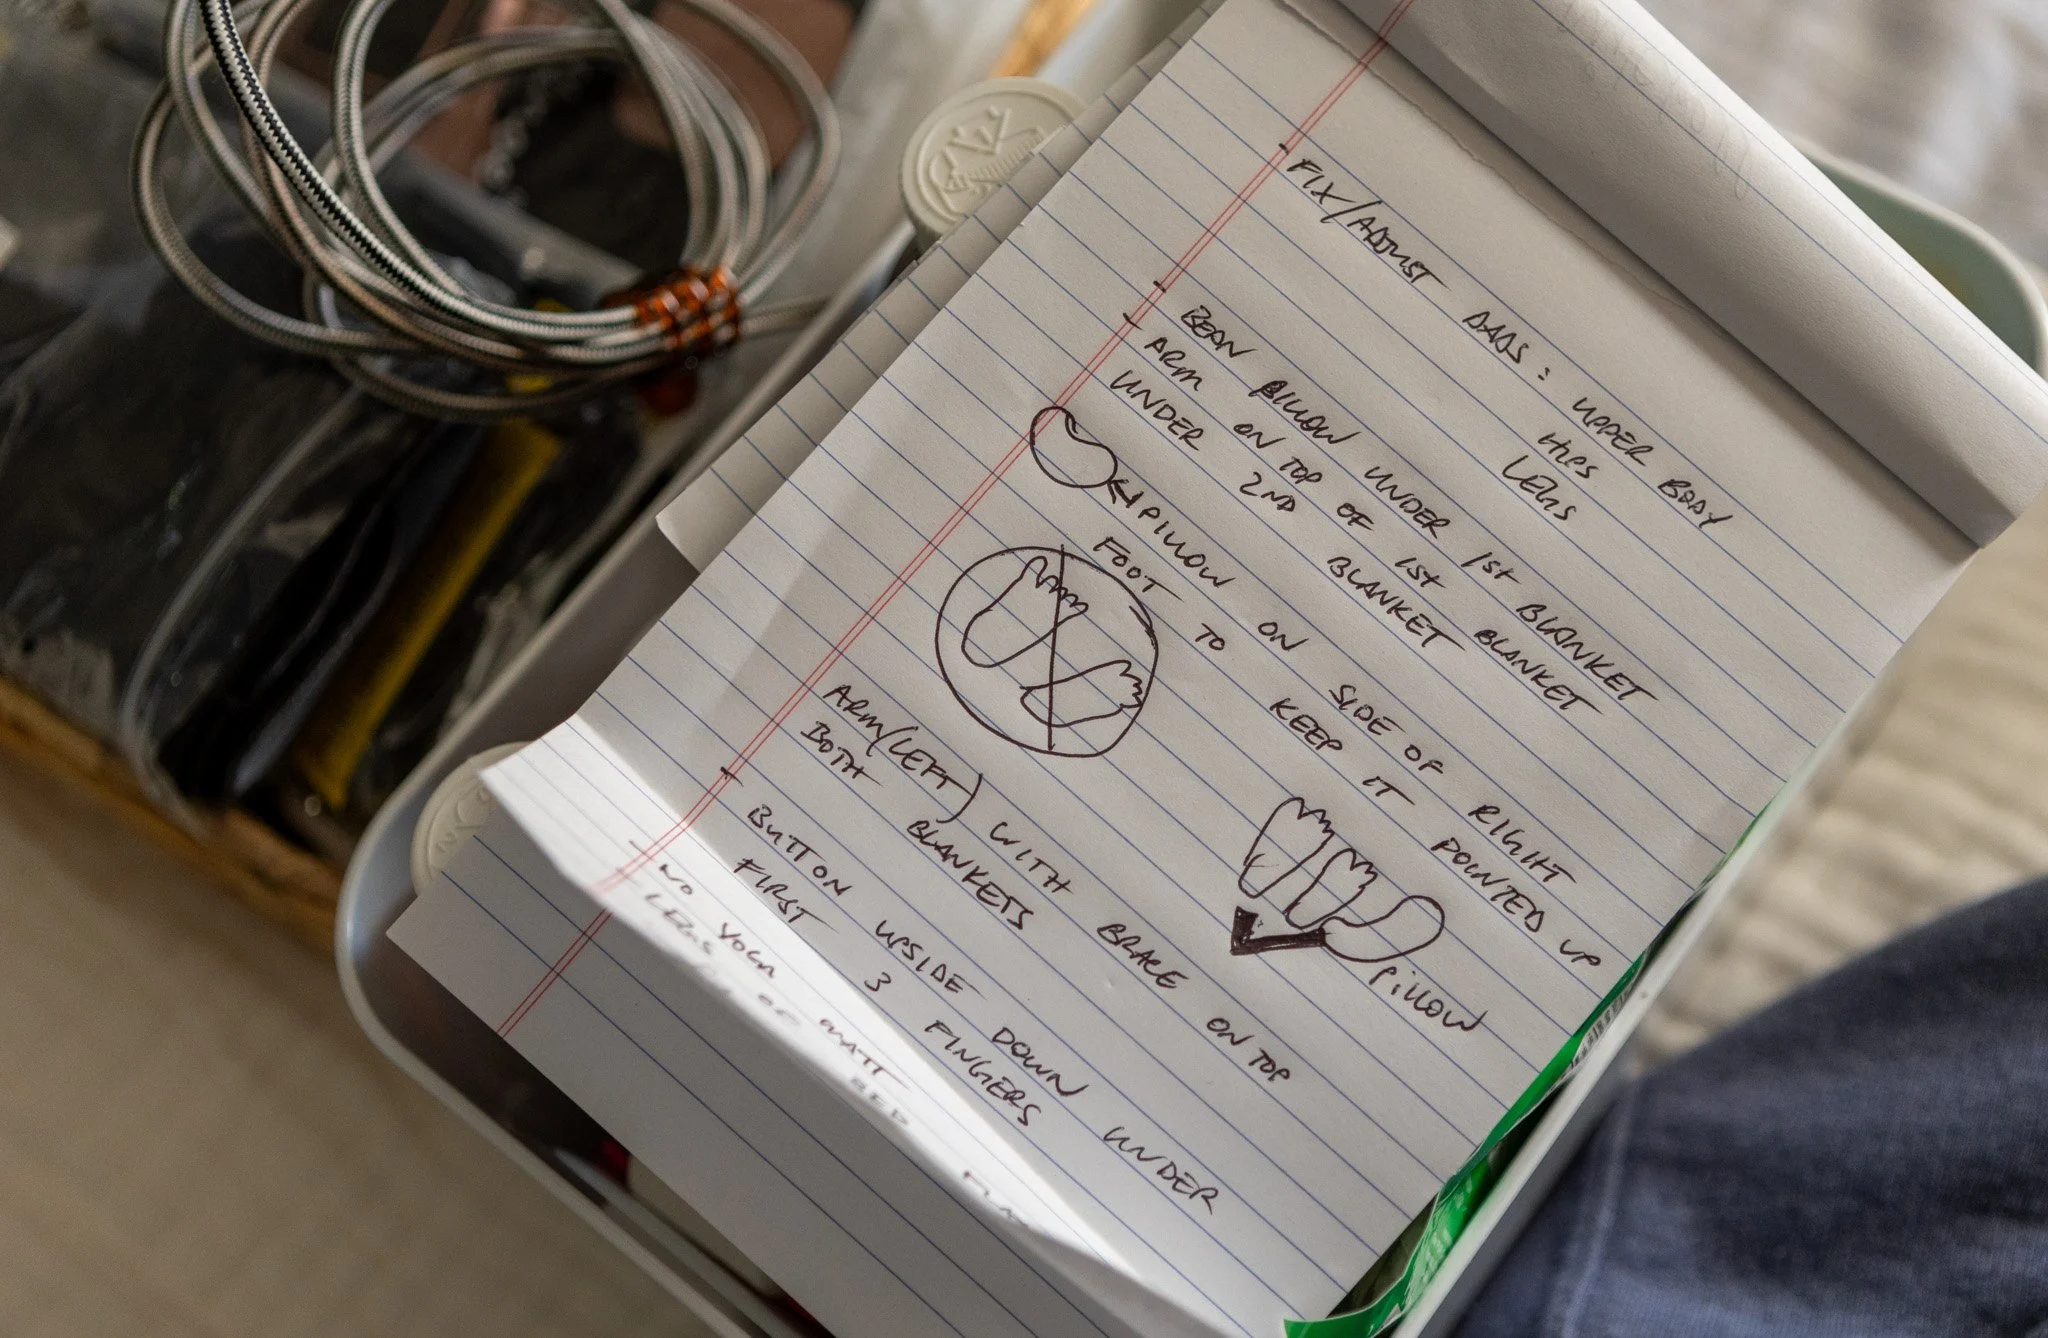 - FIX/ADJUST DADS: UPPER BODY
HIPS
LEGS
- BEAN PILLOW UNDER 1st BLANKET
- ARM ON TOP OF 1st BLANKET
UNDER 2ND BLANKET
← PILLOW ON SIDE OF RIGHT
FOOT TO KEEP IT POINTED UP
PILLOW
ARM (LEFT) WITH BRACE ON TOP
BOTH BLANKETS
- BUTTON UPSIDE DOWN UNDER
FIRST 3 FINGERS
- NO YOGA MATT
- LEGS BED